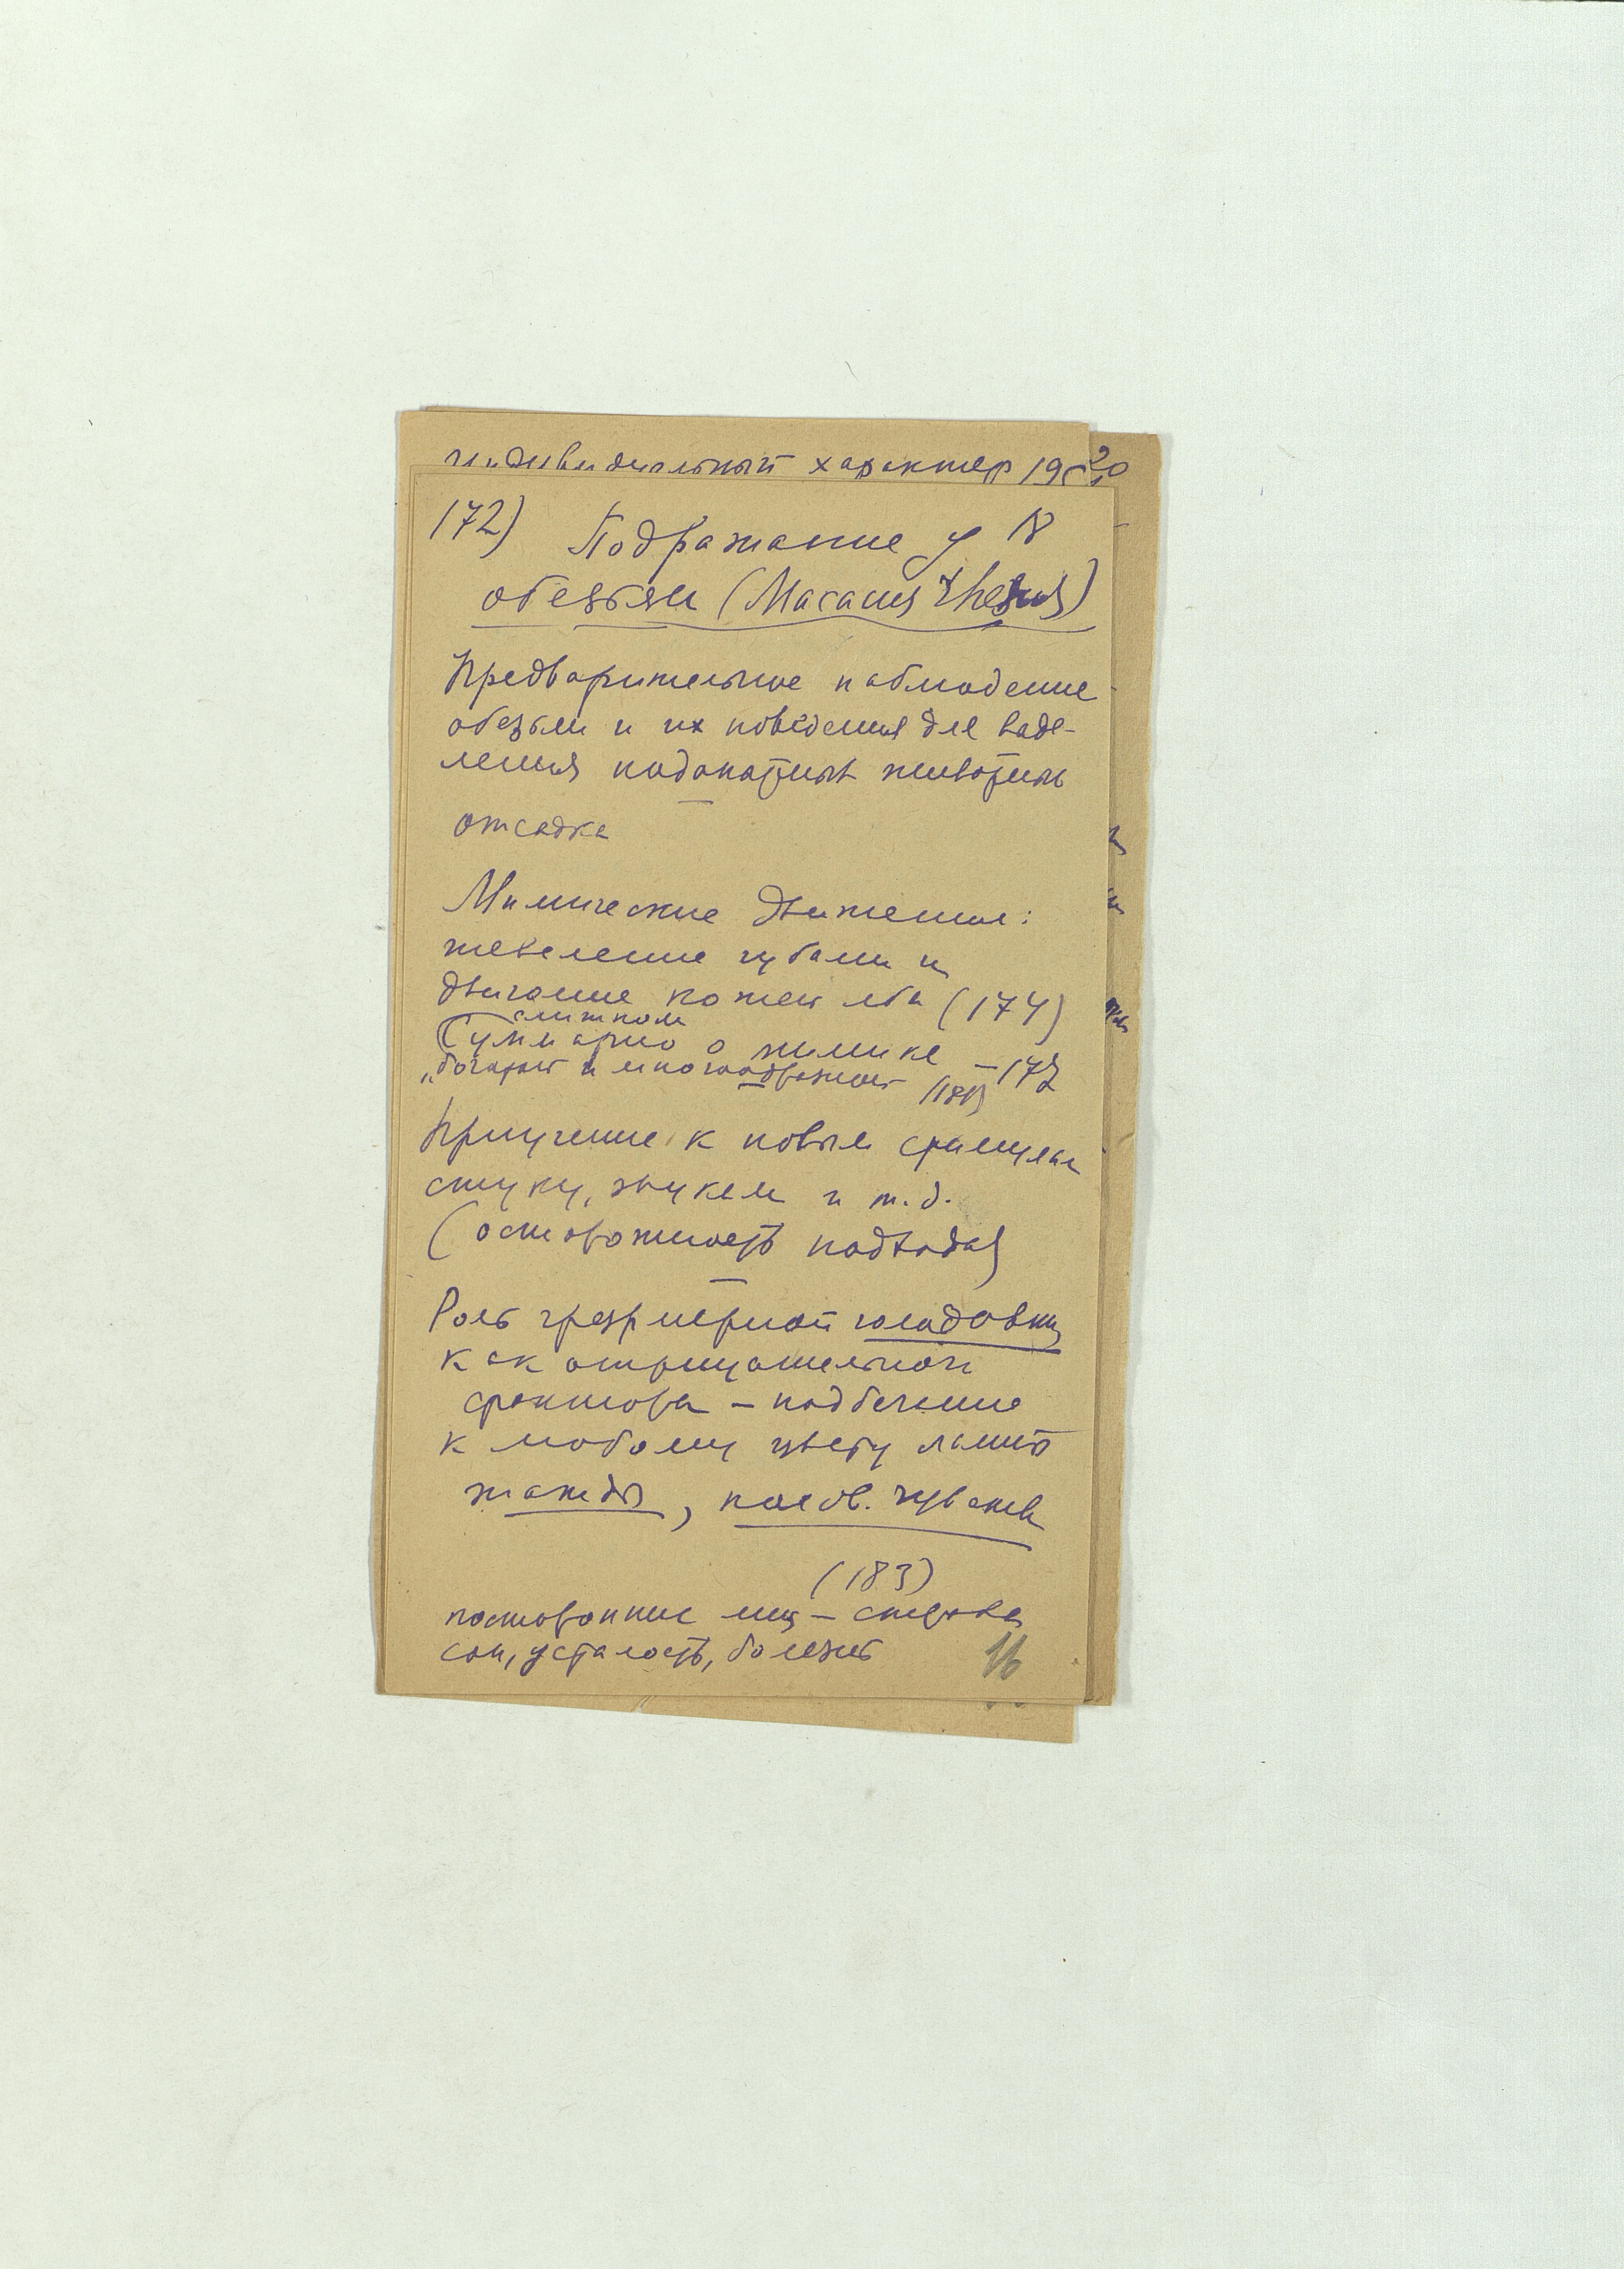 индивидуальный характер 19
20
172) Подражание у 18
обезьян (Macacus rhesus)
Предварительное наблюдение
обезьян и их поведения для выде-
ления подопытных животных
отсадка
Мимические движения:
шевеление губами и
двигание кожей лба (174)
слишком
(Суммарно о мимике – 175
„богатой и многообразной (181)
Приучение к новым стимулам
стуку, звукам и т.д.
(осторожность подхода)
Роль чрезмерной голодовки
как отрицательного
фактора – подбегание
к любому цвету лишь
жажды, полов. чувства
(183)
посторонние лица –
сон, усталость, болезнь
16